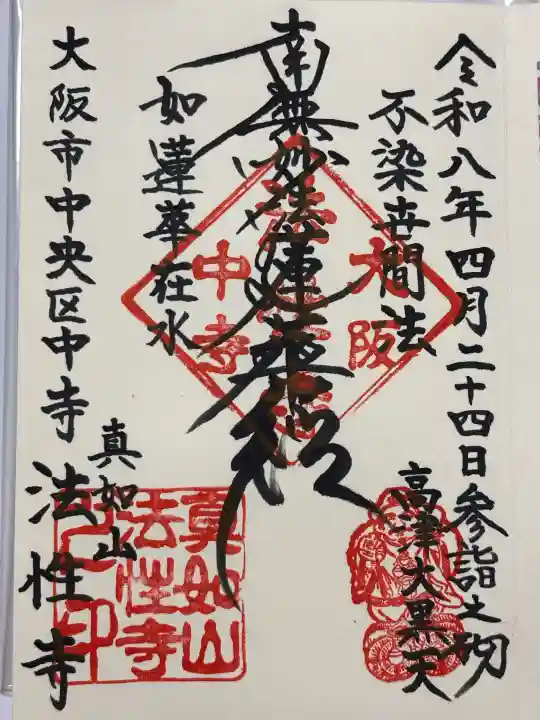 令和八年四月二十四日参詣之砌
不染世間法
高津大黒天
南無妙法蓮華経
如蓮華在水
真如山
大阪市中央区中寺
法性寺
大阪
中寺
真如山
法性寺
之印